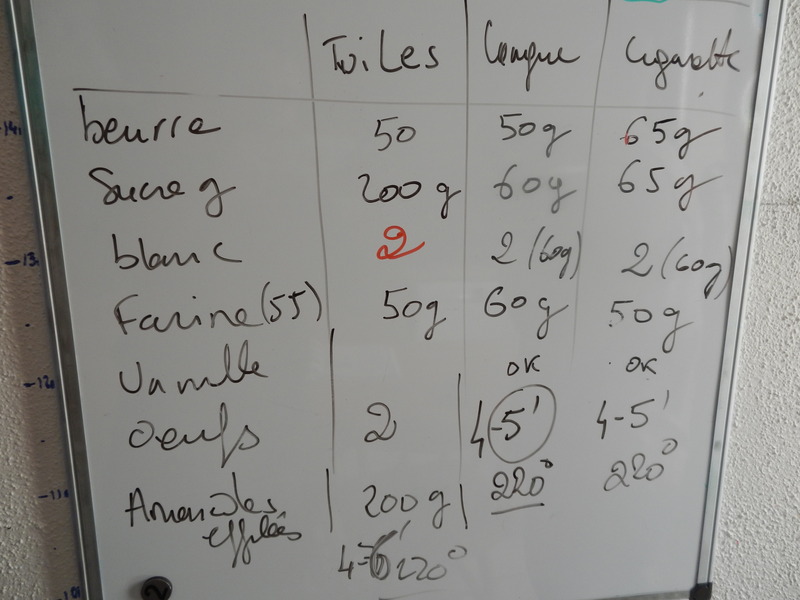 Tuiles Langue Cigarette
beurre 50 50g 65g
Sucre g 200g 60g 65g
blanc 2 2 (60g) 2 (60g)
Farine (55) 50g 60g 50g
Vanille OK OK
Oeufs 2 4-5' 4-5'
220° 220°
Amandes 200g
effilées
4-6' 220°